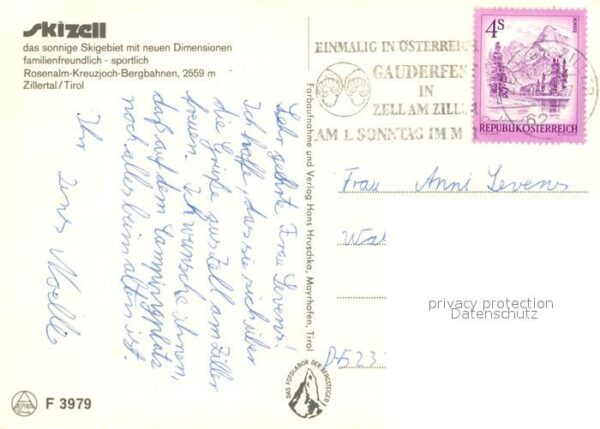 Skizell
das sonnige Skigebiet mit neuen Dimensionen
familienfreundlich · sportlich
Rosenalm-Kreuzjoch-Bergbahnen, 2559 m
Zillertal/Tirol
Sehr geehrte Frau Sevens!
Ich hoffe, das sie sich über
die Grüße aus Zell am Ziller
freuen. Ich wünsche Ihnen,
daß auf dem Campingplatz
noch alles beim alten ist.
Ihr
F 3979
Farbaufnahme und Verlag Hans Hruschka, Mayrhofen, Tirol
DAS FOTOLABOR DER BERGSTEIGER
EINMALIG IN ÖSTERREICH
GAUDERFES
IN
ZELL AM ZILL
AM 1. SONNTAG IM M
4S
REPUBLIK ÖSTERREICH
Frau Anni Sevens
privacy protection
Datenschutz